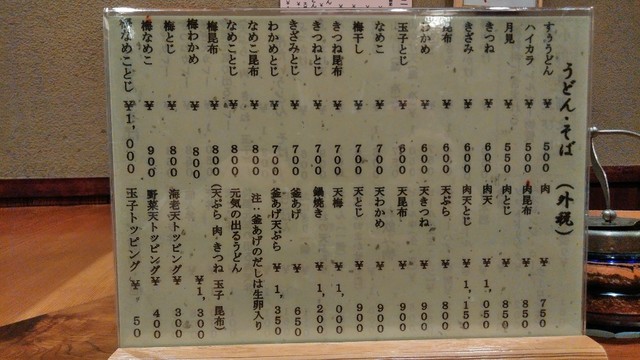 うどん・そば (外税)
すうどん ¥ 500
ハイカラ ¥ 500
月見 ¥ 550
きつね ¥ 600
きざみ ¥ 600
昆布 ¥ 600
わかめ ¥ 600
玉子とじ ¥ 600
なめこ ¥ 700
梅干し ¥ 700
きつね昆布 ¥ 700
きつねとじ ¥ 700
きざみとじ ¥ 700
わかめとじ ¥ 700
なめこ昆布 ¥ 800
なめことじ ¥ 800
梅昆布 ¥ 800
梅わかめ ¥ 800
梅とじ ¥ 800
梅なめこ ¥ 900
梅なめことじ ¥1,000
肉 ¥ 750
肉昆布 ¥ 850
肉とじ ¥ 850
肉天 ¥1,050
肉天とじ ¥1,150
天ぷら ¥ 800
天きつね ¥ 900
天昆布 ¥ 900
天わかめ ¥ 900
天とじ ¥ 900
天梅 ¥1,000
鍋焼き ¥1,200
釜あげ ¥ 650
釜あげ天ぷら ¥1,350
注:釜あげのだしは生卵入り
元気の出るうどん
(天ぷら 肉 きつね 玉子 昆布)
¥1,300
海老天トッピング ¥ 300
野菜天トッピング ¥ 400
玉子トッピング ¥ 50